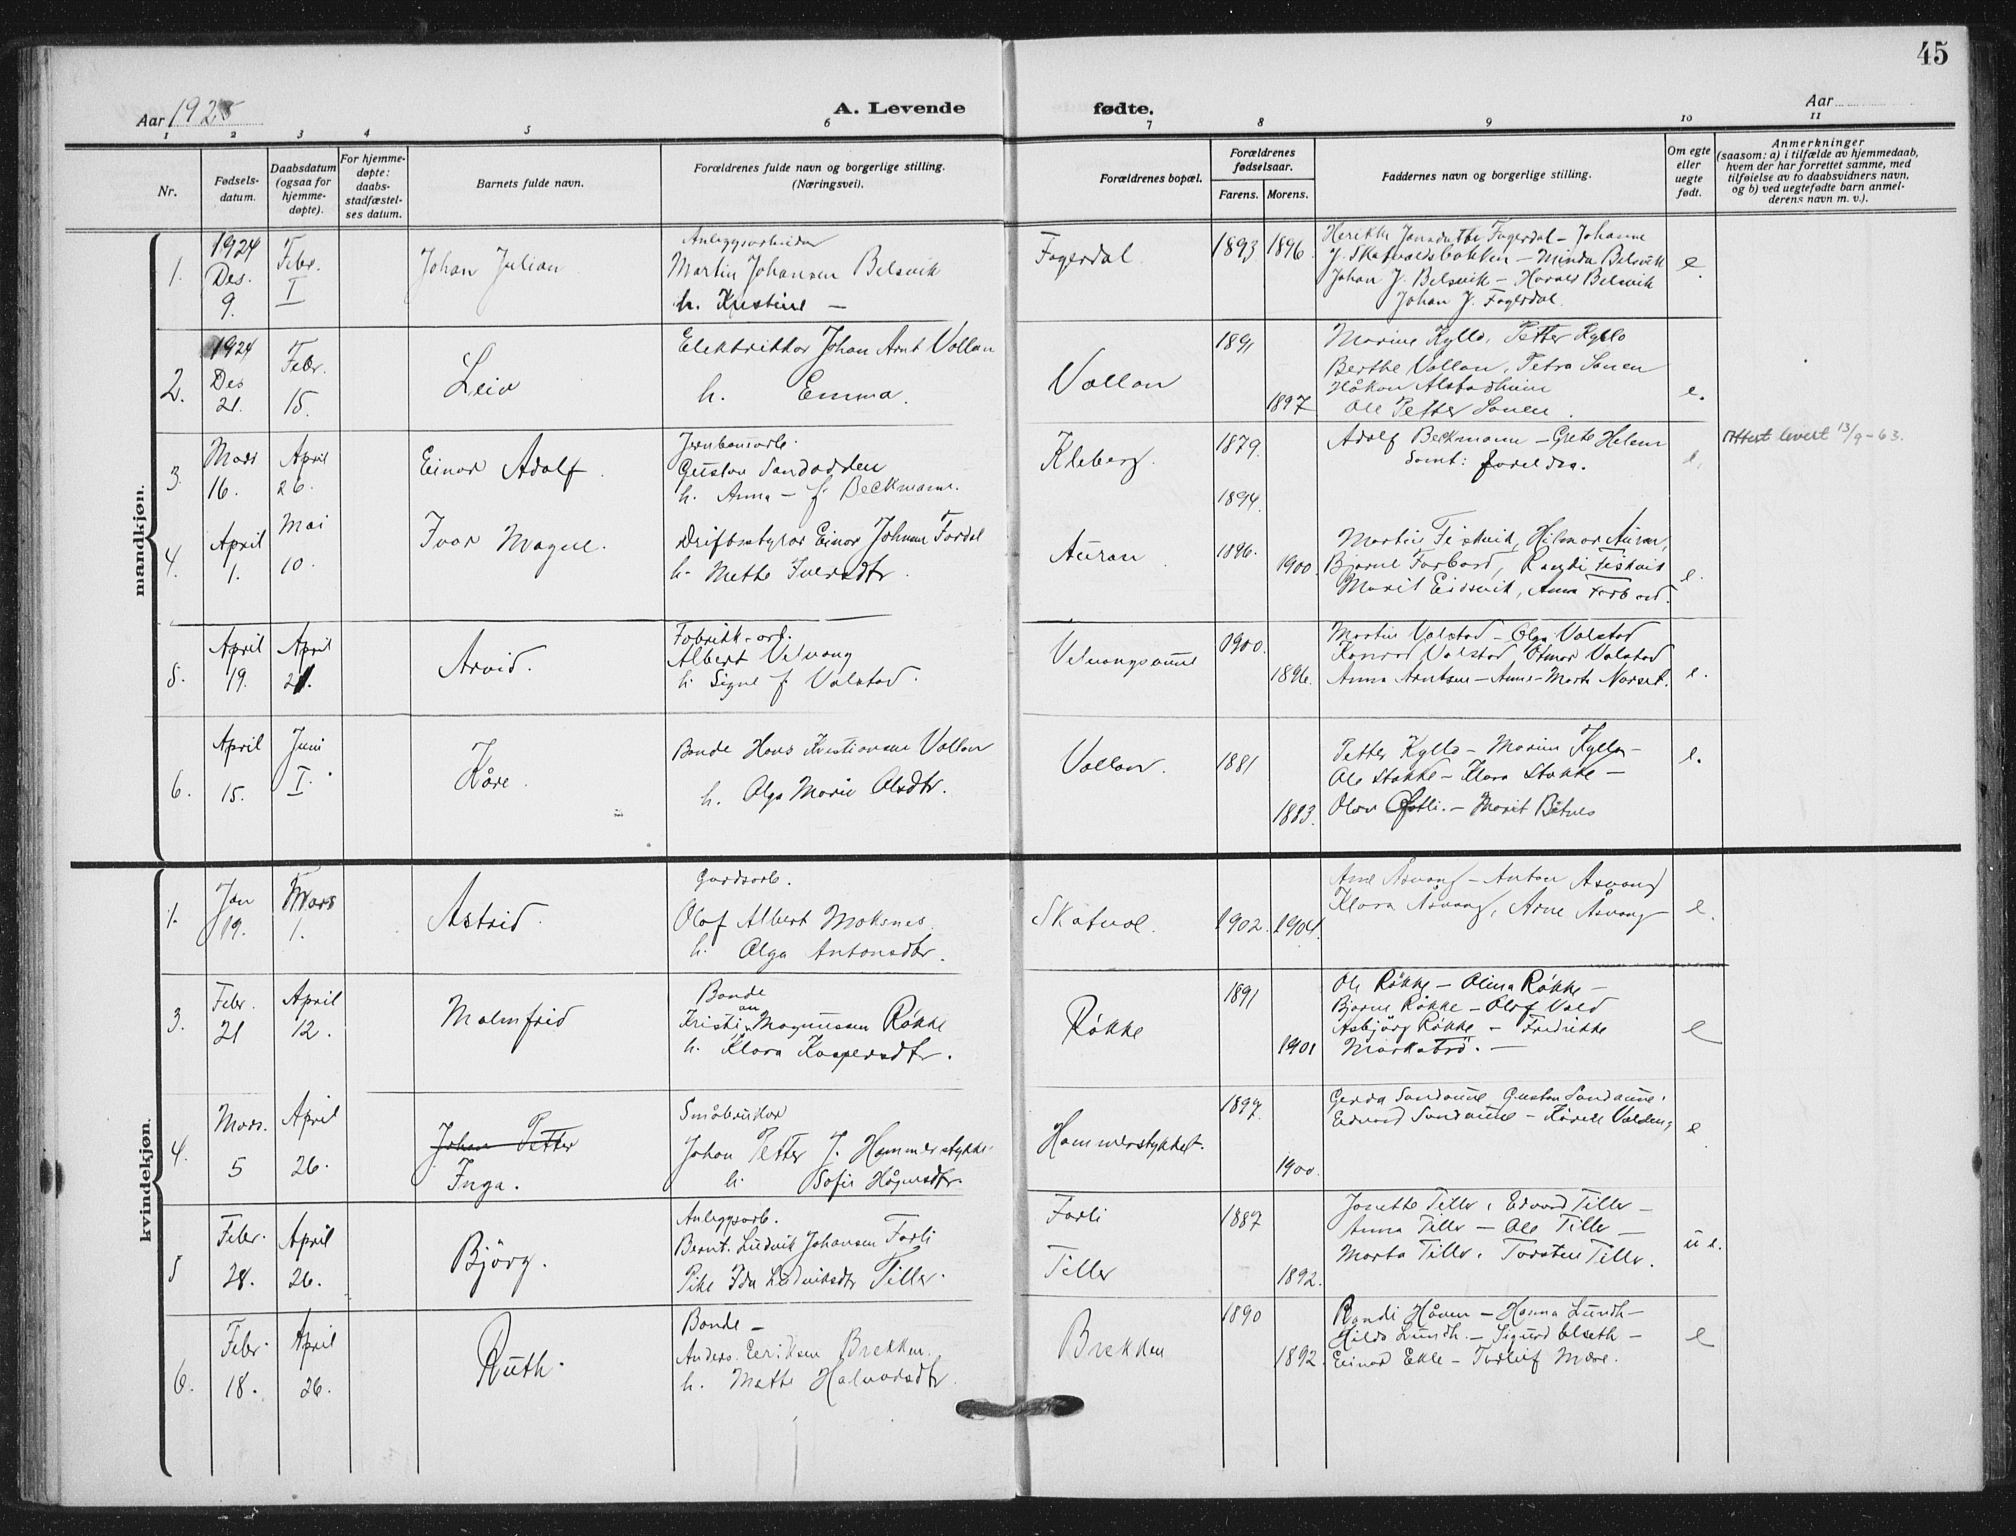 45
Aar 1925
A. Levende
fødte.
Aar
1 2 3 4 5 6 7 8 9 10 11
Nr.
Fødsels-
datum.
Daabsdatum
(ogsaa for
hjemme-
døpte).
For hjemme-
døpte:
daabs-
stadfæstel-
ses datum.
Barnets fulde navn.
Forældrenes fulde navn og borgerlige stilling.
(Næringsvei).
Forældrenes bopæl.
Forældrenes
fødselsaar.
Farens. Morens.
Faddernes navn og borgerlige stilling.
Om egte
eller
uegte
født.
Anmerkninger
(saasom: a) i tilfælde av hjemmedaab,
hvem der har forrettet samme, med
tilføielse av to daabsvidners navn,
og b) ved uegtefødte barn anmel-
derens navn m. v.).
mandkjøn.
1.
1924
Des.
9.
Febr.
I
Johan Julian
Anleggsarbeider
Martin Johansen Belsvik
h. Kristine —
Fagerdal
1893 1896
Johanne
J. Skatvoldsbakken — Minda Belsvik
Johan J. Belsvik — Harald Belsvik
Johan J. Fagerdal.
e.
2.
1924
Des
21.
Febr.
15.
Leiv
Elektrikkar Johan Arnt Vollan
h. Emma.
Vollan
1891
1897
Marius Kyllo, Petter Kyllo
Berthe Vollan, Petra
Håkon Alstadheim
Ole Petter
e.
3.
Mars
16.
April
26.
Einar Adolf
Jernbanearb.
Gustav Sandodden
h. Anna — f. Beckmann.
Kleberg.
1879.
1894.
Adolf Beckmann — Grete
Samt: foreldra.
e.
Attest levert 13/9-63.
4.
April
1.
Mai
10.
Ivar Magne.
Driftsstyrar Einar Johannes Fordal
h. Mette Iversdtr.
Auran
1896.
1900.
Martin Fiskvik, Hilmar Auran,
Bjarne Forbord, Randi Fiskvik
Marit Eidsvik, Anna Forbord.
e.
5.
April
19.
April
21.
Arvid.
Fabrikk-arb.
Albert Velvang
h. Signe f. Valstad.
Velvangsaune
1900.
1896.
Martin Valstad — Olga Valstad
Konrad Valstad, Otmar Valstad
Anna Arntsen — Anne-Marta Norset.
e.
6.
April
15.
Juni
I.
Kåre.
Bonde Hans Kristiansen Vollan
h. Olga Marie Olsdtr.
Vollan.
1881
1883.
Petter Kyllo — Marius Kyllo —
Ole Stokke — Klara Stokke —
Olav Østli. — Marit
e.
kvindekjøn.
1.
Jan
19.
Mars
1.
Astrid.
Gardsarb.
Olaf Albert Moksnes
h. Olga Antonsdtr.
Skatval.
1902. 1904.
Åsvang — Anton Åsvang
Klara Åsvang, Arne Åsvang
e.
3.
Febr.
21
April
12.
Malmfrid
Bonde
Kristian Magnussen Røkke
h. Klara Kaspersdtr.
Røkke
1891
1901
Ole Røkke — Olina Røkke —
Bjarne Røkke — Olaf Vold
Asbjørg Røkke — Fredrikke
Markabrå. —
e
4.
Mars.
5
April
26.
Johan Petter
Inga.
Småbrukar
Johan Petter J. Hammerstykke.
h. Sofie Håkonsdtr.
Hammerstykket.
1897.
1900.
Gerda Sandaune, Gustav Sandaune,
Edvard Sandaune —
e
5
Febr.
28.
April
26.
Björg.
Anleggsarb.
Bernt Ludvik Johansen Forli
Pike Ida Ludviksdtr Tiller.
Forli
Tiller
1887
1892.
Jonette Tiller, Edvard Tiller —
Anna Tiller — Ole Tiller —
Marta Tiller, Torsten Tiller.
u e.
6.
Febr.
18.
April
26.
Ruth.
Bonde —
Anders Eriksen Brekken.
h. Mette Halvorsdtr.
Brekken
1890
1892.
Randi Håven — Hanna Lundh —
Hilda Lundh. — Sigurd Elseth —
Einar Ekle — Torleif Mære.
e